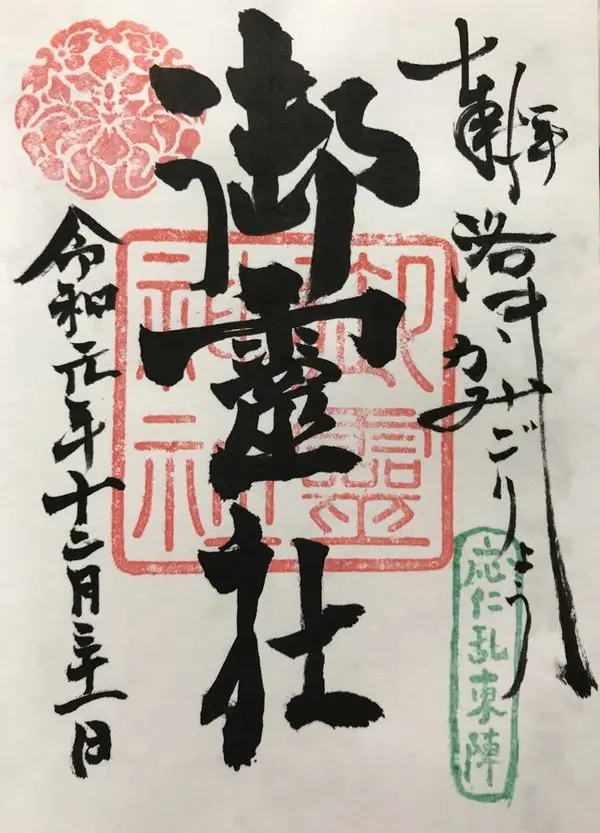 奉拝
洛中かみごりょう
応仁乱東陣
御靈社
令和元年十二月三十一日